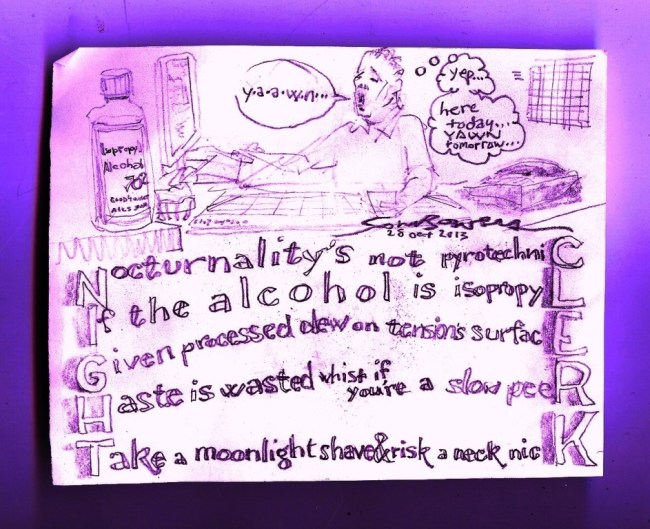 y·a·a·w·n...
yep...
here
today...
YAWN
tomorrow...
Isopropyl
Alcohol
28 oct 2013
Nocturnality's not pyrotechniC
If the alcohol is isopropyL
Given processed dew on tension's surfacE
Haste is wasted whist if you're a slow peeR
Take a moonlight shave & risk a neck nicK